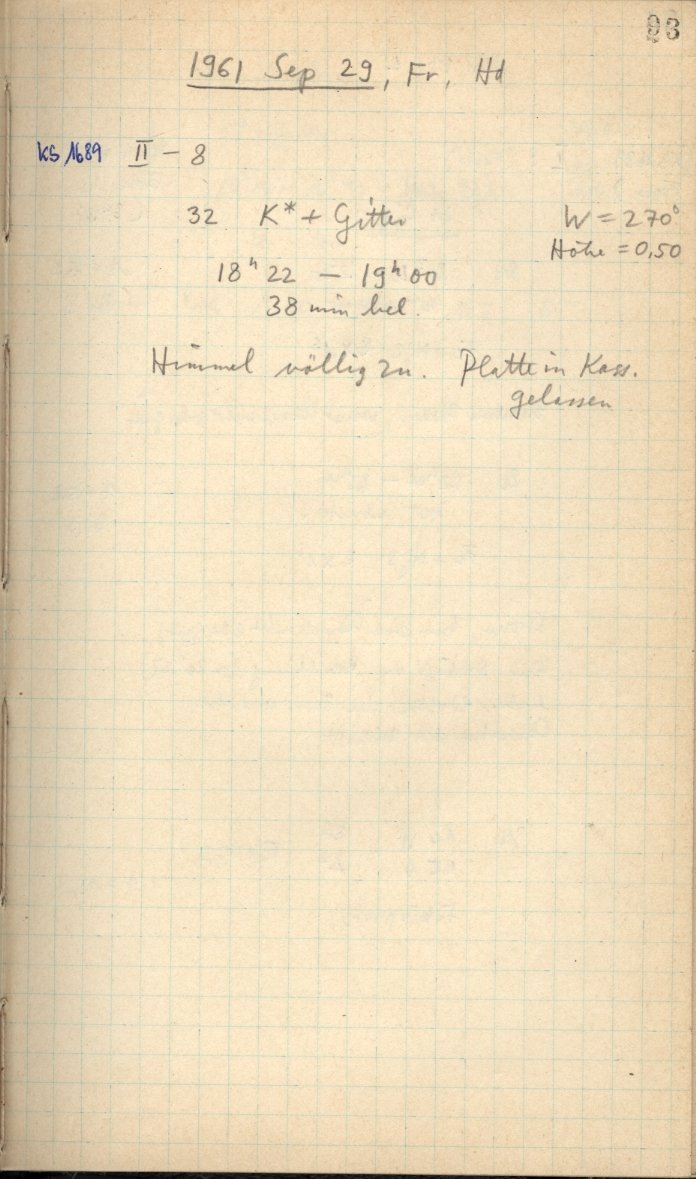 1961 Sep 29, Fr, Hd
KS 1689 II – 8
32 K* + Gitter W = 270°
Höhe = 0,50
18ʰ 22 – 19ʰ 00
38 min bel.
Himmel völlig zu. Platte in Kass.
gelassen